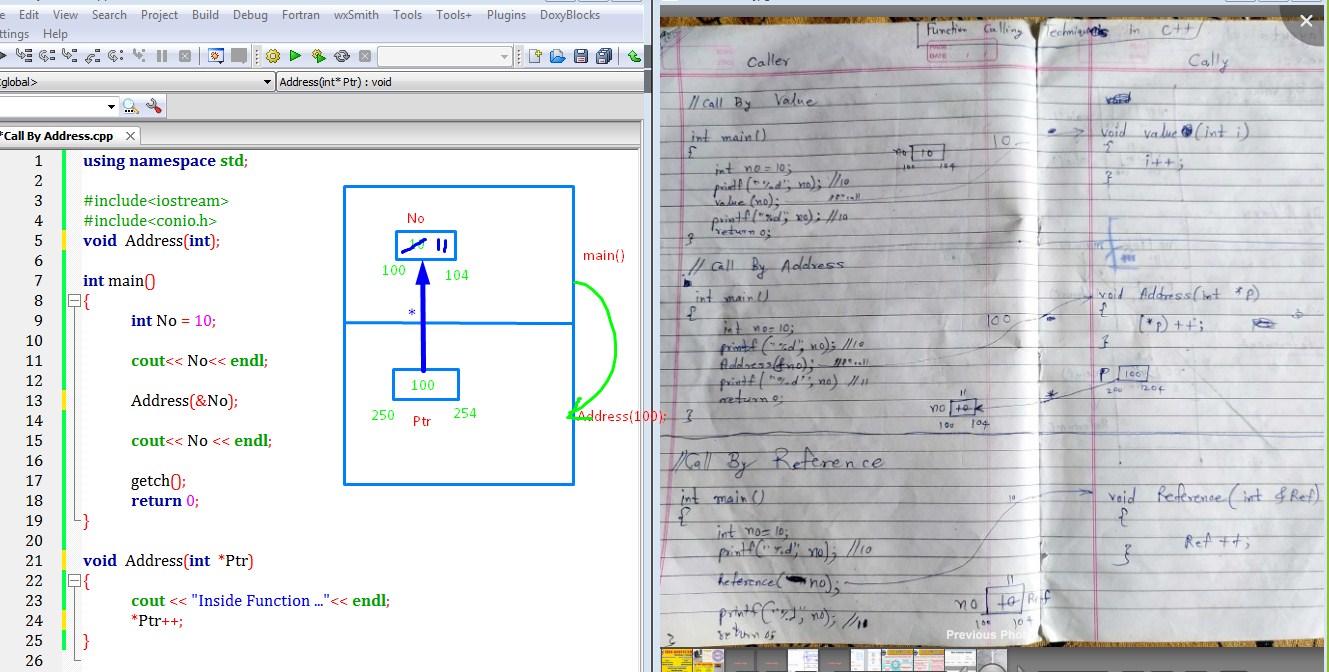 e Edit View Search Project Build Debug Fortran wxSmith Tools Tools+ Plugins DoxyBlocks
ttings Help
global>
Address(int* Ptr) : void
*Call By Address.cpp
1 using namespace std;
2
3 #include<iostream>
4 #include<conio.h>
5 void Address(int);
6
7 int main()
8 {
9 int No = 10;
10
11 cout<< No<< endl;
12
13 Address(&No);
14
15 cout<< No << endl;
16
17 getch();
18 return 0;
19 }
20
21 void Address(int *Ptr)
22 {
23 cout << "Inside Function ..."<< endl;
24 *Ptr++;
25 }
26
No
11
100 104
main()
*
100
250 254
Ptr
Address(100);
Function Calling Techniques in C++
Caller
Cally
// Call By Value
int main()
{
int no = 10;
printf("%d", no); //10
value (no);
printf("%d", no); //10
return 0;
}
no 10
100 104
10
void value (int i)
{
i++;
}
// Call By Address
int main()
{
int no = 10;
printf("%d", no); //10
Address(&no);
printf("%d", no) //11
return 0;
}
100
11
no 10
100 104
void Address(int *p)
{
(*p)++;
}
P 100
200 204
*
//Call By Reference
int main()
{
int no = 10;
printf("%d", no); //10
Reference( no);
printf("%d", no); //11
return 0;
}
10
11
no 10 Ref
100 104
void Reference(int &Ref)
{
Ref ++;
}
Previous Pho